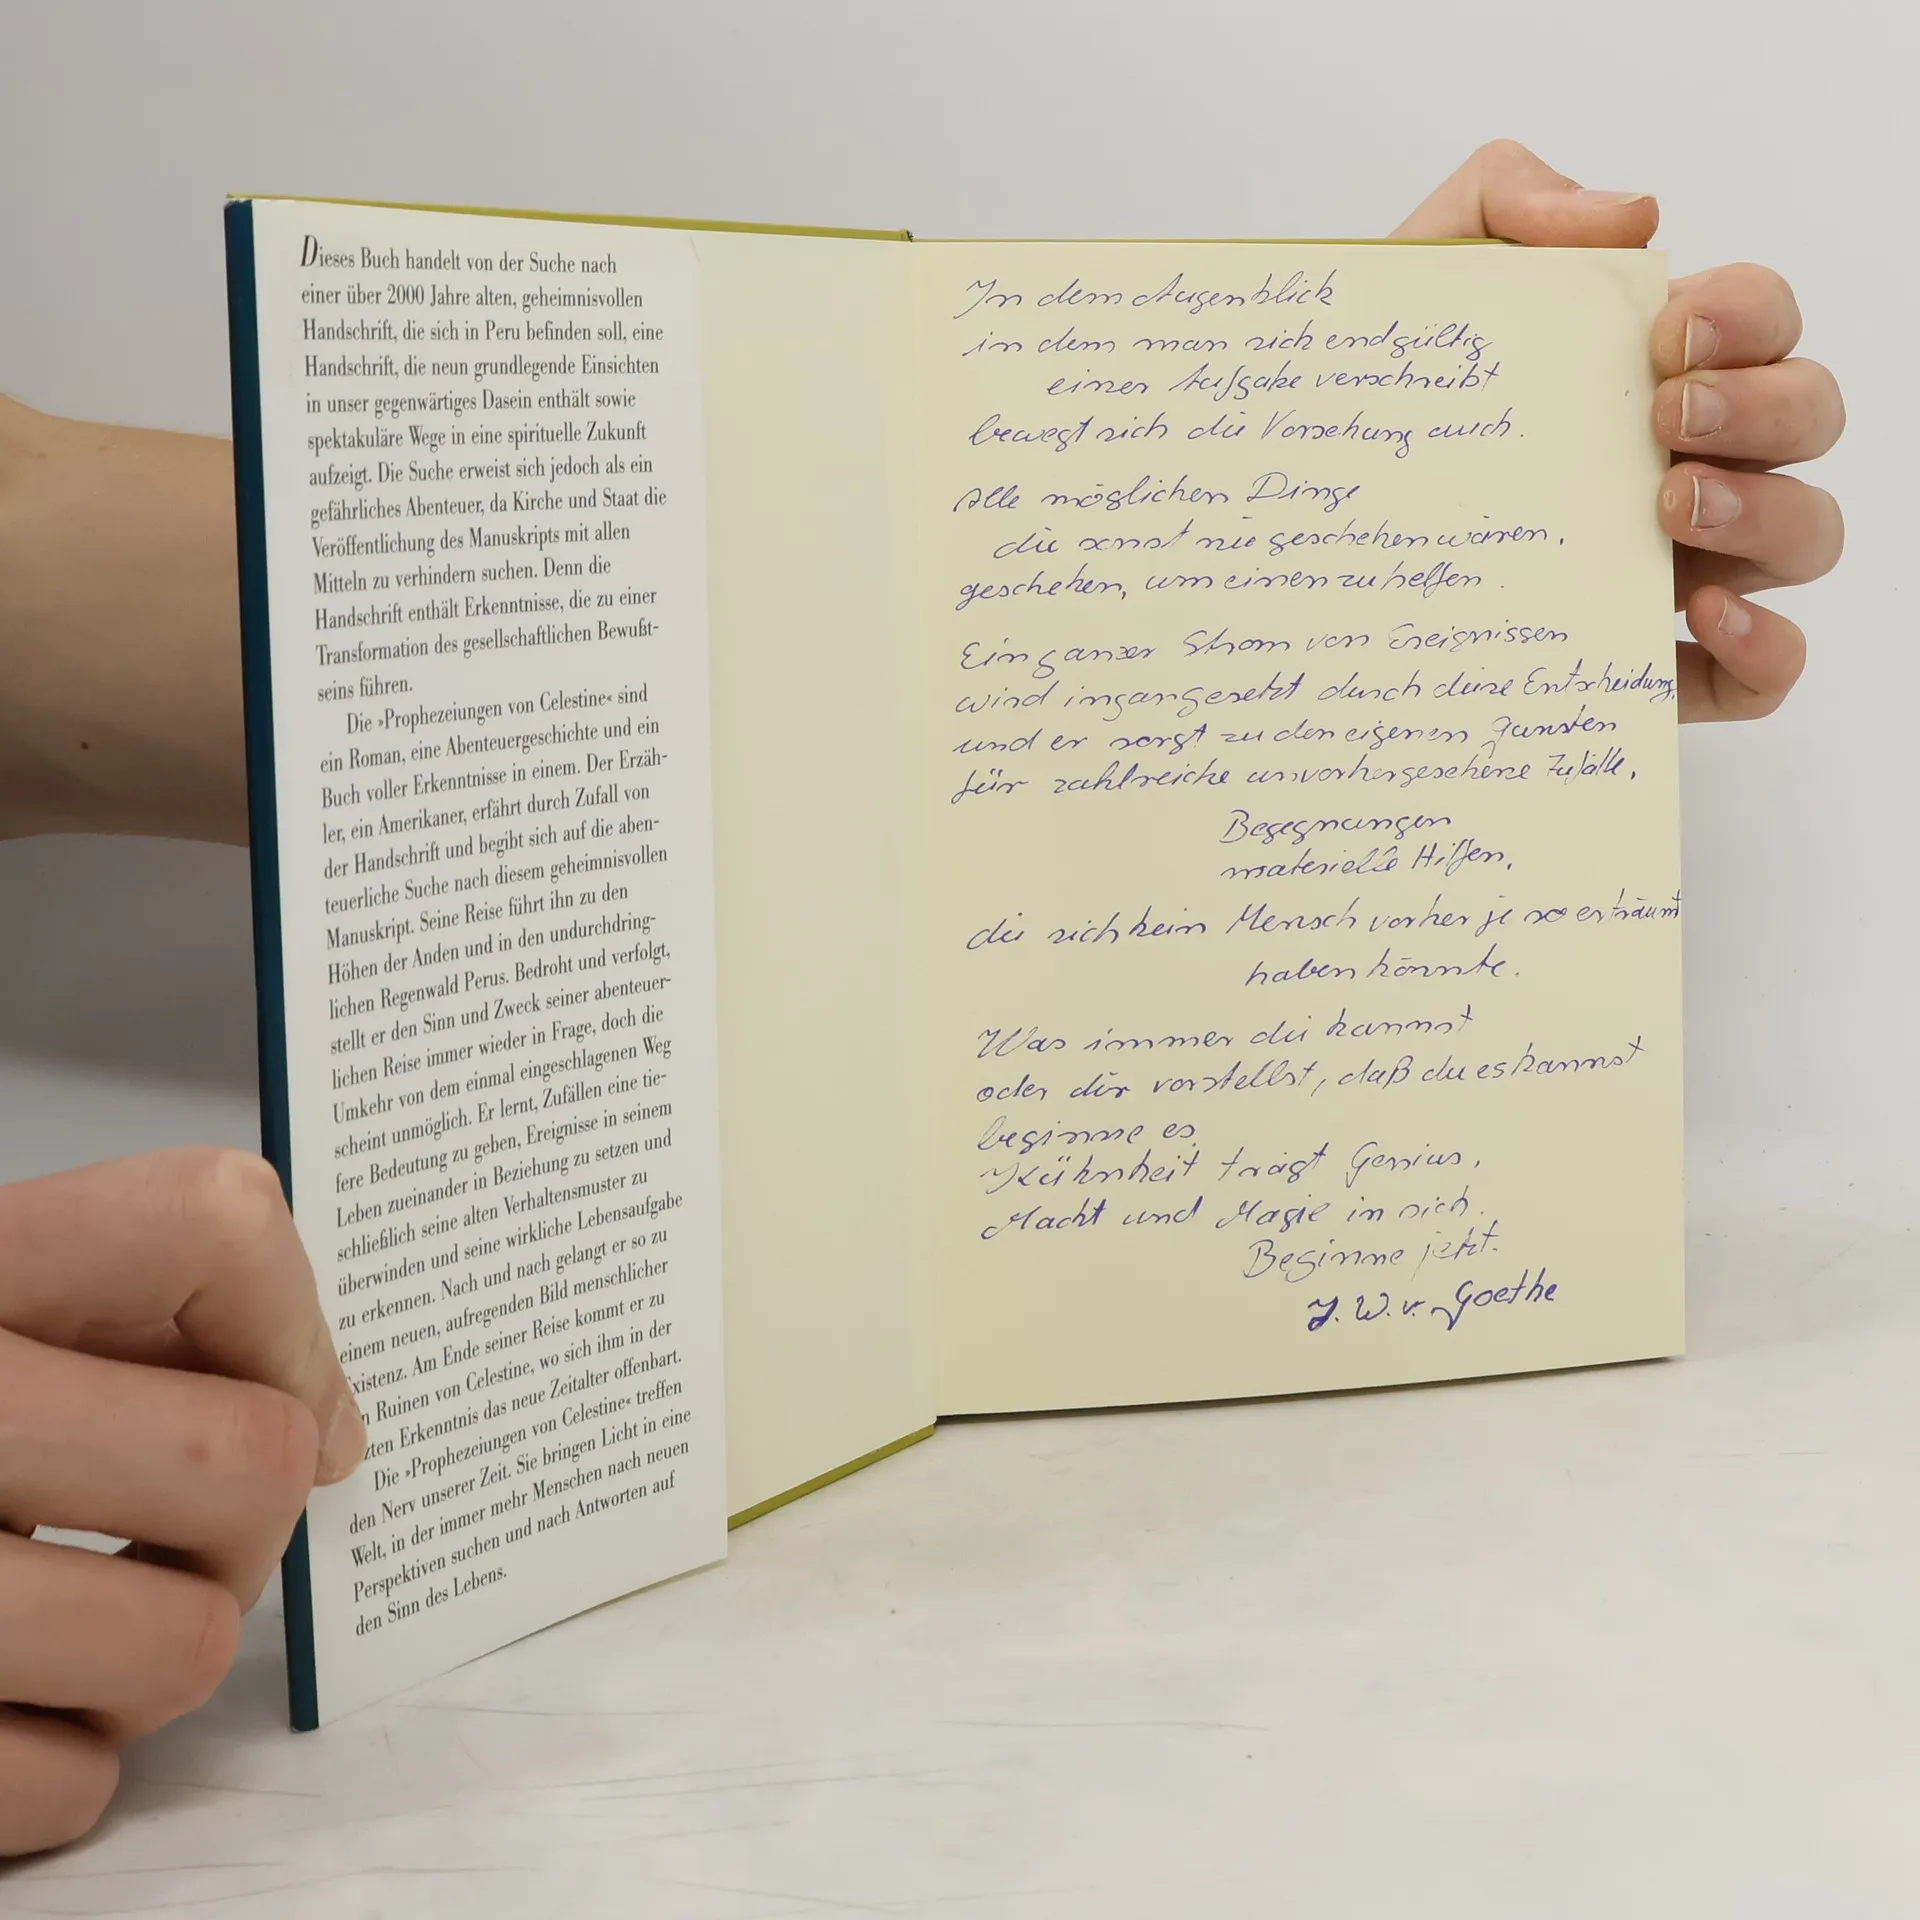 Dieses Buch handelt von der Suche nach
einer über 2000 Jahre alten, geheimnisvollen
Handschrift, die sich in Peru befinden soll, eine
Handschrift, die neun grundlegende Einsichten
in unser gegenwärtiges Dasein enthält sowie
spektakuläre Wege in eine spirituelle Zukunft
aufzeigt. Die Suche erweist sich jedoch als ein
gefährliches Abenteuer, da Kirche und Staat die
Veröffentlichung des Manuskripts mit allen
Mitteln zu verhindern suchen. Denn die
Handschrift enthält Erkenntnisse, die zu einer
Transformation des gesellschaftlichen Bewußt-
seins führen.
Die »Prophezeiungen von Celestine« sind
ein Roman, eine Abenteuergeschichte und ein
Buch voller Erkenntnisse in einem. Der Erzäh-
ler, ein Amerikaner, erfährt durch Zufall von
der Handschrift und begibt sich auf die aben-
teuerliche Suche nach diesem geheimnisvollen
Manuskript. Seine Reise führt ihn zu den
Höhen der Anden und in den undurchdring-
lichen Regenwald Perus. Bedroht und verfolgt,
stellt er den Sinn und Zweck seiner abenteuer-
lichen Reise immer wieder in Frage, doch die
Umkehr von dem einmal eingeschlagenen Weg
scheint unmöglich. Er lernt, Zufällen eine tie-
fere Bedeutung zu geben, Ereignisse in seinem
Leben zueinander in Beziehung zu setzen und
schließlich seine alten Verhaltensmuster zu
überwinden und seine wirkliche Lebensaufgabe
zu erkennen. Nach und nach gelangt er so zu
einem neuen, aufregenden Bild menschlicher
xistenz. Am Ende seiner Reise kommt er zu
n Ruinen von Celestine, wo sich ihm in der
zten Erkenntnis das neue Zeitalter offenbart.
Die »Prophezeiungen von Celestine« treffen
den Nerv unserer Zeit. Sie bringen Licht in eine
Welt, in der immer mehr Menschen nach neuen
Perspektiven suchen und nach Antworten auf
den Sinn des Lebens.
In dem Augenblick
in dem man sich endgültig
einer Aufgabe verschreibt
bewegt sich die Vorsehung auch.
Alle möglichen Dinge
die sonst nie geschehen wären,
geschehen, um einen zu helfen.
Ein ganzer Strom von Ereignissen
wird ingangesetzt durch deine Entscheidung,
und er sorgt zu den eigenen Gunsten
für zahlreiche unvorhergesehene Zufälle,
Begegnungen
materielle Hilfen,
die sich kein Mensch vorher je so erträumt
haben könnte.
Was immer du kannst
oder dir vorstellst, daß du es kannst
beginne es.
Kühnheit trägt Genius,
Macht und Magie in sich.
Beginne jetzt.
J. W. v. Goethe